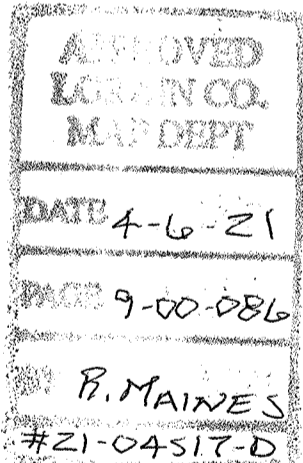 APPROVED
LORAIN CO.
MAP DEPT
DATE 4-6-21
PAGE 9-00-086
BY R. MAINES
#21-04517-D